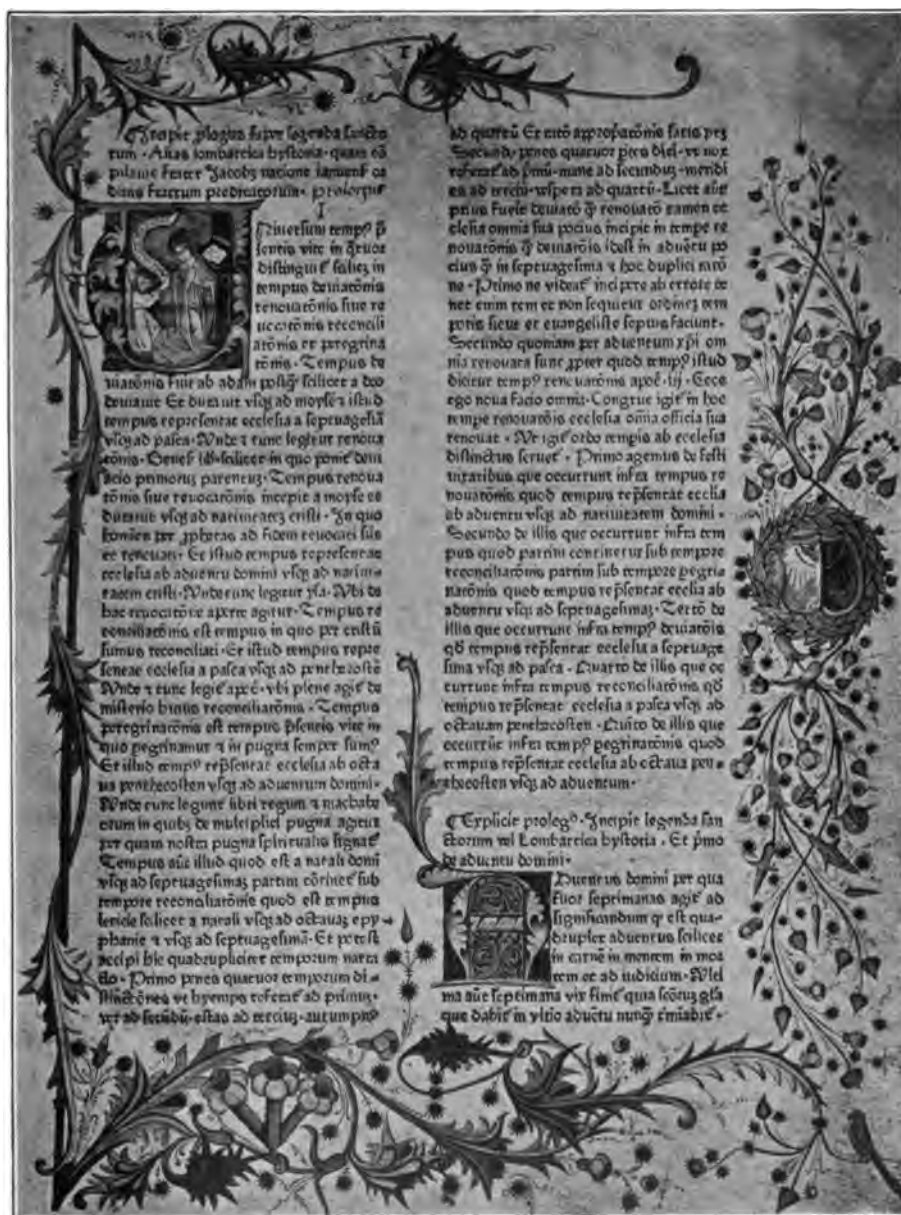 Incipit plogus super legenda sancto
rum · Alias lombartica hystoria · quam cō
pilauit frater Jacobꝫ nacione ianuenẜ or
dinis fratrum predicatorum · prologus
I
Niuersum tempꝰ p̄
sentis vite in q̄tuor
distinguitᷣ scilicꝫ in
tempus deuiatōnis
renouatōnis siue re
uocatōnis reconcili
atōnis et peregrina
tōnis · Tempus de
uiatōnis fuit ab adam postq̄ scilicet a deo
deuiauit Et durauit vsqꝫ ad moysē ⁊ istud
tempus representat ecclesia a septuagesiā
vsqꝫ ad pasca · Vnde ⁊ tunc legitur renoua
tōnis · scilicet in quo ponitᷣ deui
acio primorꝫ parentuꝫ · Tempus renoua
tōnis siue reuocatōnis incepit a moyse et
durauit vsqꝫ ad natiuitateꝫ cristi · In quo
homīes per ꝓphetas ad fidem reuocati sūt
et renouati · Et istud tempus representat
ecclesia ab aduentu domini vsqꝫ ad natiui-
tatem cristi · Vnde tunc legitur ysa · Vbi de
hac reuocatōne aperte agitur · Tempus re
conciliatōnis est tempus in quo per cristū
sumus reconciliati · Et istud tempus repre
sentat ecclesia a pasca vsqꝫ ad penthecostē
Vnde ⁊ tunc legitᷣ apoč · vbi plene agitᷣ de
misterio huius reconciliatōnis · Tempus
peregrinatōnis est tempus p̄sentis vite in
quo pegrinamur ⁊ in pugna semper sumꝰ
Et illud tempꝰ rep̄sentat ecclesia ab octa
ua penthecosten vsqꝫ ad aduentum domini ·
Vnde tunc leguntᷣ libri regum ⁊ machabe
orum in quibꝫ de multiplici pugna agitur
per quam nostra pugna spiritualis signatᷣ
Tempus aūt illud quod est a natali domī
vsqꝫ ad septuagesimaꝫ partim cōtinetᷣ sub
tempore reconciliatōnis quod est tempus
leticie scilicet a natali vsqꝫ ad octauaꝫ epy
phanie ⁊ vsqꝫ ad septuagesimā · Et potest
accipi hec quadrupliciter temporum varia
tio · Primo penes quatuor temporum di-
stinctōnes vt hyemps referatᷣ ad primuꝫ ·
ver ad secūdū · estas ad terciuꝫ · autumpnꝰ
ad quartū Et rātō appropatōnis satis ptꝫ
Secundo penes quatuor ptes diei · vt nox
referatᷣ ad pmū · mane ad secunduꝫ · meridi
es ad terciū · vespera ad quartū · Licet aūt
prius fuerit deuiatō q̄ renouatō tamen ec
clesia omnia sua pocius incipit in tempe re
nouatōnis q̄ deuiatōis idest in aduētu po
cius q̄ in septuagesima ⁊ hoc duplici ratō
ne · Primo ne videatᷣ incipere ab errore te
net enim rem et non sequitur ordineꝫ tem
poris sicut et euangeliste sepius faciunt ·
Secundo quoniam per aduentum xp̄i om
nia renouata sunt ꝓpter quod tempꝰ istud
dicitur tempꝰ renouatōnis apoč · iij · Ecce
ego noua facio omnia · Congrue igitᷣ in hoc
tempe renouatōis ecclesia omia officia sua
renouat · Vt igitᷣ ordo tempis ab ecclesia
distinctus seruetᷣ · Primo agemus de festi
uitatibus que occurrunt infra tempus re
nouatōnis quod tempus rep̄sentat ecclīa
ab aduentu vsqꝫ ad natiuitatem domini ·
Secundo de illis que occurrunt infra tem
pus quod partim continetur sub tempore
reconciliatōnis partim sub tempore pegri
natōnis quod tempus rep̄sentat ecclia ab
aduentu vsqꝫ ad septuagesimaꝫ · Tertō de
illis que occurrunt infra tempꝰ deuiatōis
qd̄ tempus rep̄sentat ecclesia a septuage
sima vsqꝫ ad pasca · Quarto de illis que oc
currunt infra tempus reconciliatōnis qd̄
tempus rep̄sentat ecclesia a pasca vsqꝫ ad
octauam penthecosten · Quīto de illis que
occurrūt infra tempꝰ pegrinatōnis quod
tempus rep̄sentat ecclesia ab octaua pen-
thecosten vsqꝫ ad aduentum ·
Explicit prologꝰ · Incipit legenda san
ctorum vel Lombartica hystoria · Et pmo
de aduentu domini ·
Duentus domini per qua
tuor septimanas agitᷣ ad
significandum qꝫ est qua-
druplex aduentus scilicet
in carnē in mentem in mor
tem et ad iudicium · Vlti
ma aūt septimana vix finitᷣ quia scōꝝ glīa
que dabitᷣ in vltīo aduētu nunq̄ tmīabitᷣ ·